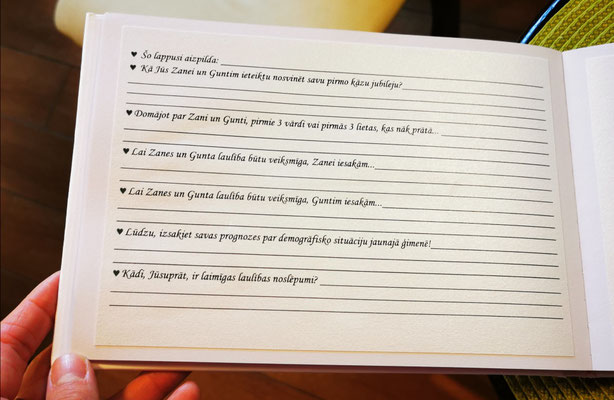 ♥ Šo lappusi aizpilda:
♥ Kā Jūs Zanei un Guntim ieteiktu nosvinēt savu pirmo kāzu jubileju?
♥ Domājot par Zani un Gunti, pirmie 3 vārdi vai pirmās 3 lietas, kas nāk prātā...
♥ Lai Zanes un Gunta laulība būtu veiksmīga, Zanei iesakām...
♥ Lai Zanes un Gunta laulība būtu veiksmīga, Guntim iesakām...
♥ Lūdzu, izsakiet savas prognozes par demogrāfisko situāciju jaunajā ģimenē!
♥ Kādi, Jūsuprāt, ir laimīgas laulības noslēpumi?